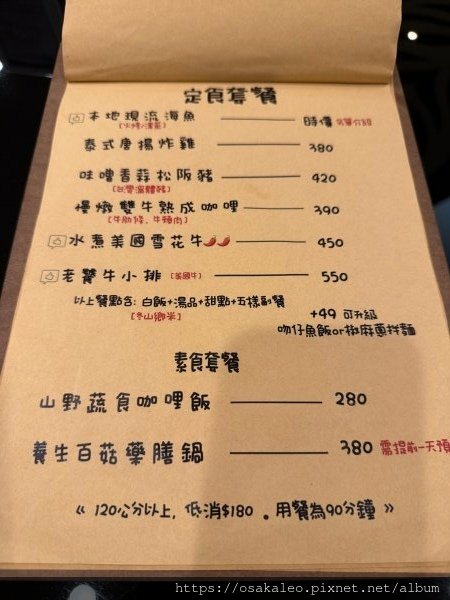 定食套餐
本地現流海魚 時價 名單介紹
泰式唐揚炸雞 380
味噌香蒜松阪豬 420
(台灣溫體豬)
慢燉雙牛熟成咖哩 390
(牛肋條、牛頰肉)
水煮美國雪花牛 450
老饕牛小排 (美國牛) 550
以上餐點含: 白飯+湯品+甜點+五樣副餐
(冬山鄉米)
+49 可升級
吻仔魚飯or椒麻蔥拌麵
素食套餐
山野蔬食咖哩飯 280
養生百菇藥膳鍋 380 需提前一天預
《 120公分以上, 低消$180 。用餐為90分鐘 》
https://osakaleo.pixnet.net/album